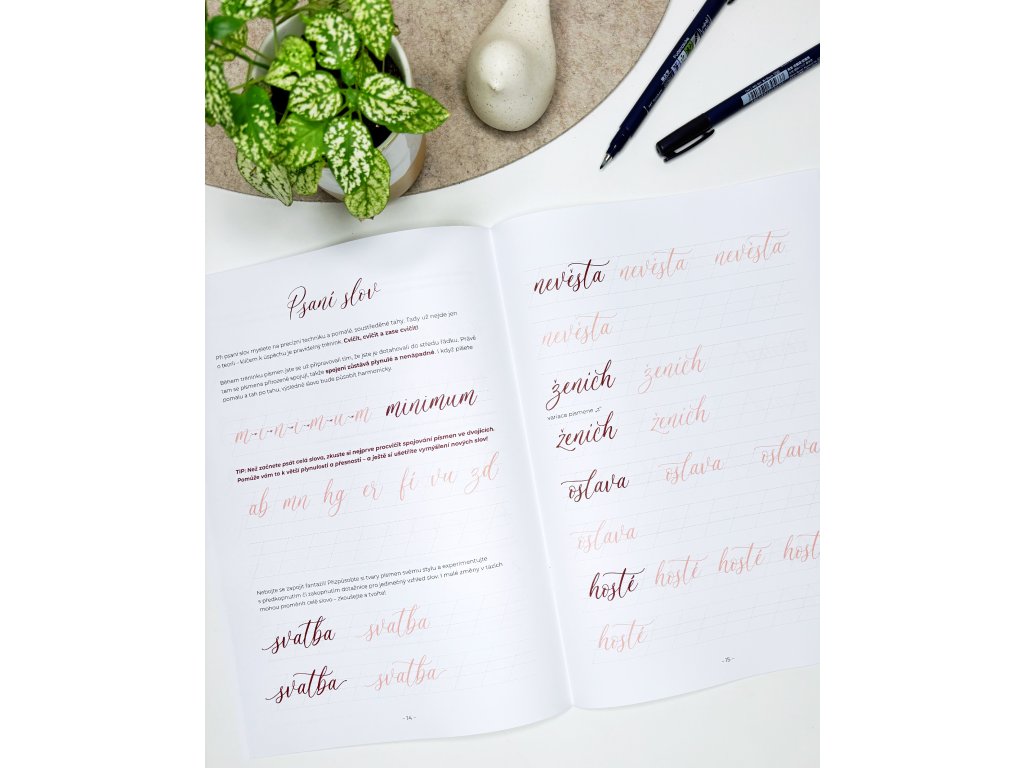 Psaní slov
Při psaní slov myslete na precizní techniku a pomalé, soustředěné tahy. Tady už nejde jen
o teorii – klíčem k úspěchu je pravidelný trénink. Cvičit, cvičit a zase cvičit!
Během tréninku písmen jste se už připravovali tím, že jste je dotahovali do středu řádku. Právě
tam se písmena přirozeně spojují, takže spojení zůstává plynulé a nenápadné. I když píšete
pomalu a tah po tahu, výsledné slovo bude působit harmonicky.
m-i-n-i-m-u-m minimum
TIP: Než začnete psát celá slova, zkuste si nejprve procvičit spojování písmen ve dvojicích.
Pomůže vám to k větší plynulosti a přesnosti – a ještě si ušetříte vymýšlení nových slov!
ab mn hg er fi vu zd
Nebojte se zapojit fantazii! Přizpůsobte si tvary písmen svému stylu a experimentujte
s předkopnutím či zakopnutím dotažnice pro jedinečný vzhled slov. I malé změny v tazích
mohou proměnit celé slovo – zkoušejte a tvořte!
svatba svatba
svatba svatba
- 14 -
nevěsta nevěsta nevěsta
nevěsta
ženich ženich
variace písmene „ž“
ženich ženich
oslava oslava oslava
oslava
hosté hosté hosté host
hosté
- 15 -